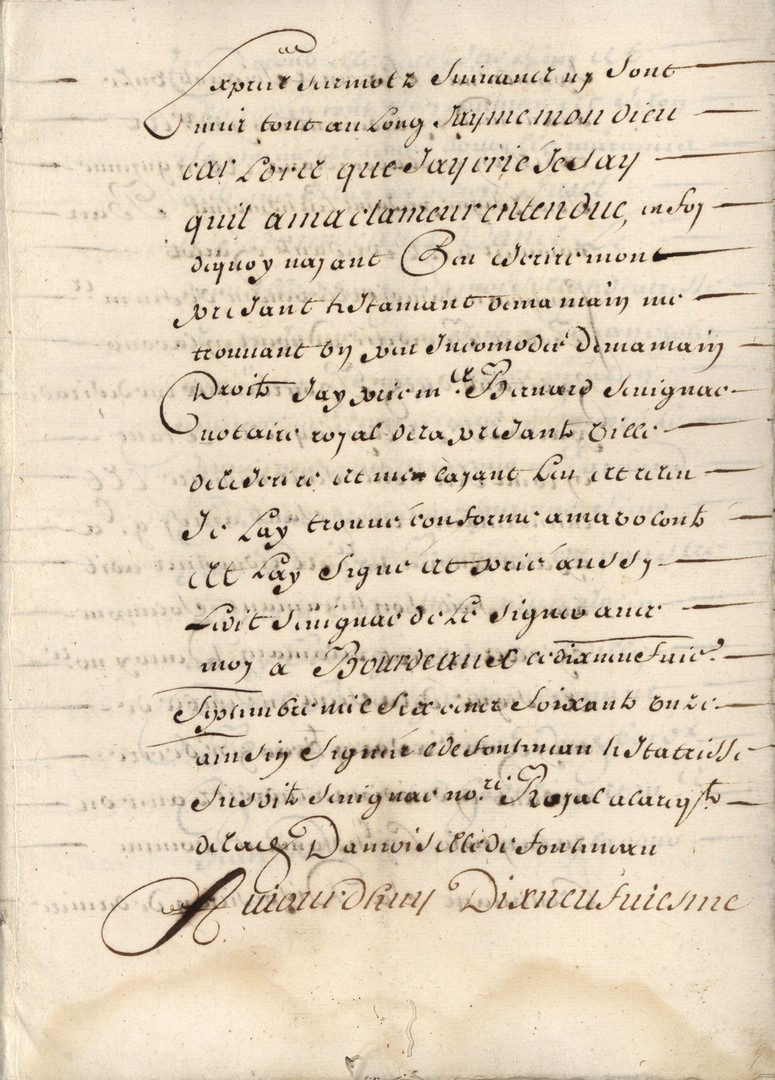 exprez les motz suivance ny sont
mis tout au Long Jayme mon dieu
car Lors que Jay crié Je say
quil a ma clameur entendue, en foy
dequoy najant peu escrire mont
presant testamant dema main me
trouvant un peu Incomodé dema main
Droite Jay prié me. Bernard Senignac
notaire royal dela presante ville
dele scrire et men lajant Leu et releu
Je Lay trouvé conforme amavolonté
Et Lay Signé et prié aussy
Ledit Senignac de Le Signer avec
moy a Bourdeaux cedixneusuie.
Septembre mil Six cens Soixante onze
ainsin Signné e de fonteneau testatrisse
Susdite Senignac no.re Royal alareqte
delad Damoiselle de fonteneau
Aujourdhuy Dixneusuiesme